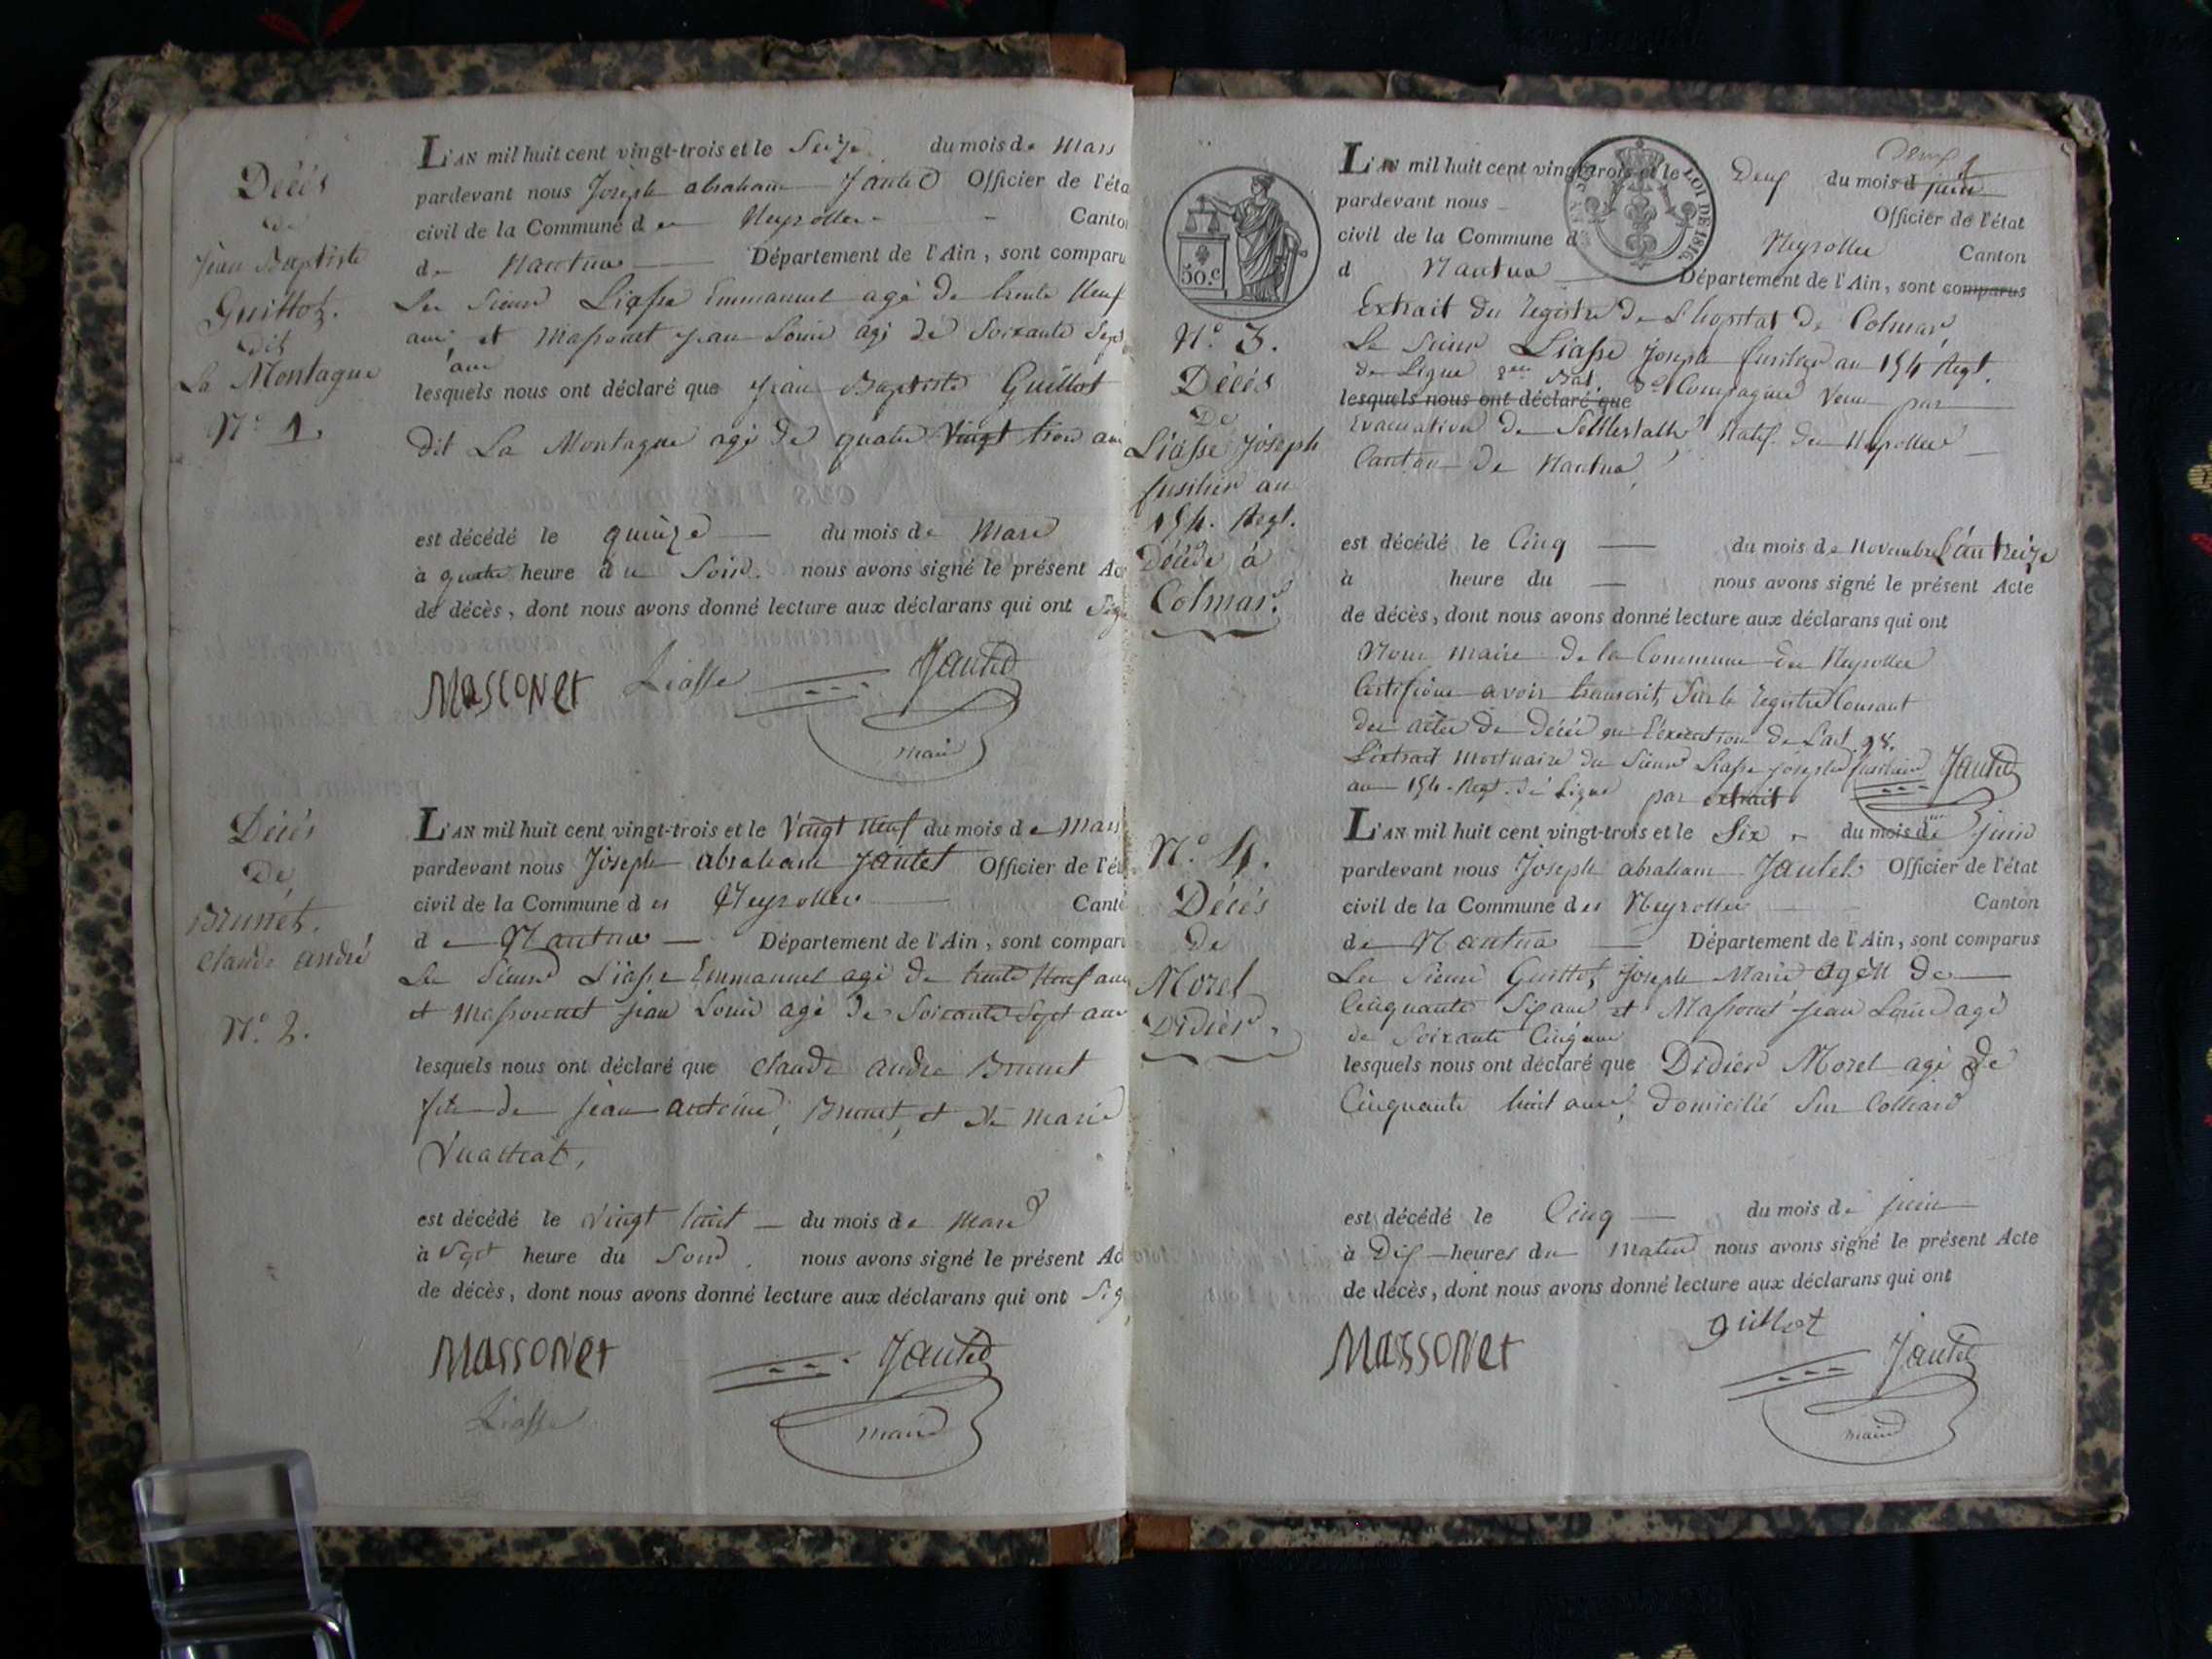 Décés
de
jean Baptiste
Guillot.
dit
La Montagne
N.° 1.
L'AN mil huit cent vingt-trois et le Seize du mois de Mars
pardevant nous Joseph abraham Jantet Officier de l'éta
civil de la Commune des Neyrolles Canton
de Nantua Département de l'Ain, sont comparu
Les Sieurs Liasse Emmanuel agé de trente Neuf
ans et Massonet jean Louis agé de Soixante Sept
ans
lesquels nous ont déclaré que jean Baptiste Guillot
dit La Montagne agé de quatre Vingt trois ans
est décédé le quinze du mois de Mars
à quatre heure du Soir. nous avons signé le présent Ac
de décès, dont nous avons donné lecture aux déclarans qui ont Sign
Massonet Liasse Jantet
maire
Décés
De
Brunet.
Claude andré
N.° 2.
L'AN mil huit cent vingt-trois et le Vingt Neuf du mois de Mars
pardevant nous Joseph abraham Jantet Officier de l'ét
civil de la Commune des Neyrolles Canto
de Nantua Département de l'Ain, sont comparu
Les Sieurs Liasse Emmanuel agé de trente Neuf ans
et Massonnet jean Louis agé de Soixante Sept ans
lesquels nous ont déclaré que Claude andré Brunet
fils de jean antoine Brunet, et de Marie
est décédé le Vingt huit du mois de Mars
à Sept heure du Soir. nous avons signé le présent Ac
de décès, dont nous avons donné lecture aux déclarans qui ont Sig
Massonet Jantet
Liasse maire
50.c
LOI DE 1816
N.° 3.
Décés
De
Liasse Joseph
fusilier au
154. Regt.
Décédé à
Colmar.
Deux
L'AN mil huit cent vingt-trois et le Deux du mois d juin
pardevant nous Officier de l'état
civil de la Commune d Neyrolles Canton
d Nantua Département de l'Ain, sont comparus
Extrait du Registre de L'hopital de Colmar
Le Sieur Liasse Joseph fusilier au 154 Regt.
de Ligne Bat. Compagnie Venu par
lesquels nous ont déclaré que
Evacuation de Natif des Neyrolles
Canton de Nantua
est décédé le Cinq du mois de Novembre L'an treize
à heure du nous avons signé le présent Acte
de décès, dont nous avons donné lecture aux déclarans qui ont
Nous maire de la Commune des Neyrolles
Certifions avoir transcrit, Sur le registre Courant
des actes de Décés en L'éxécution de L'art. 98.
L'extrait Mortuaire du Sieur Liasse joseph fusilier Jantet
au 154. Regt. de Ligne par extrait
N.° 4.
Décés
de
Morel
Didier.
L'AN mil huit cent vingt-trois et le Six du mois de juin
pardevant nous Joseph abraham Jantet Officier de l'état
civil de la Commune des Neyrolles Canton
de Nantua Département de l'Ain, sont comparus
Les Sieurs Guillot, Joseph Marie agé de
Cinquante Six ans et Massonet jean Louis agé
de Soixante Cinq ans
lesquels nous ont déclaré que Didier Morel agé de
Cinquante huit ans, Domicilié Sur Colliard
est décédé le Cinq du mois de juin
à Dix heures du Matin nous avons signé le présent Acte
de décès, dont nous avons donné lecture aux déclarans qui ont
Massonet guillot Jantet
maire